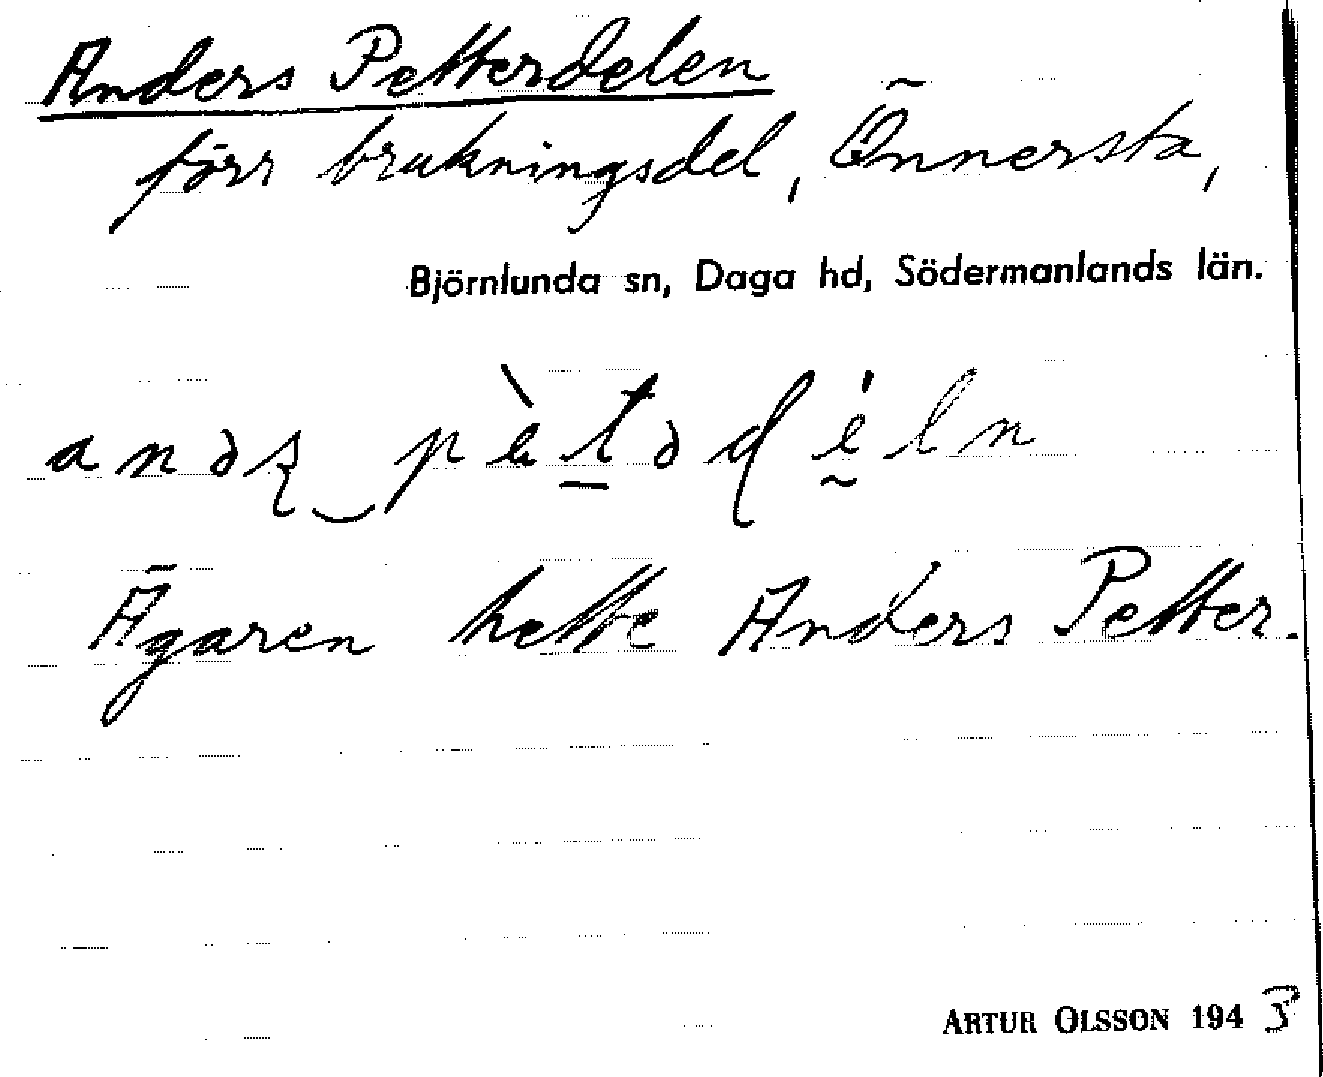 Anders Petterdelen
förr brukningsdel, Önnersta,
Björnlunda sn, Daga hd, Södermanlands län.
Ägaren hette Anders Petter.
ARTUR OLSSON 1943